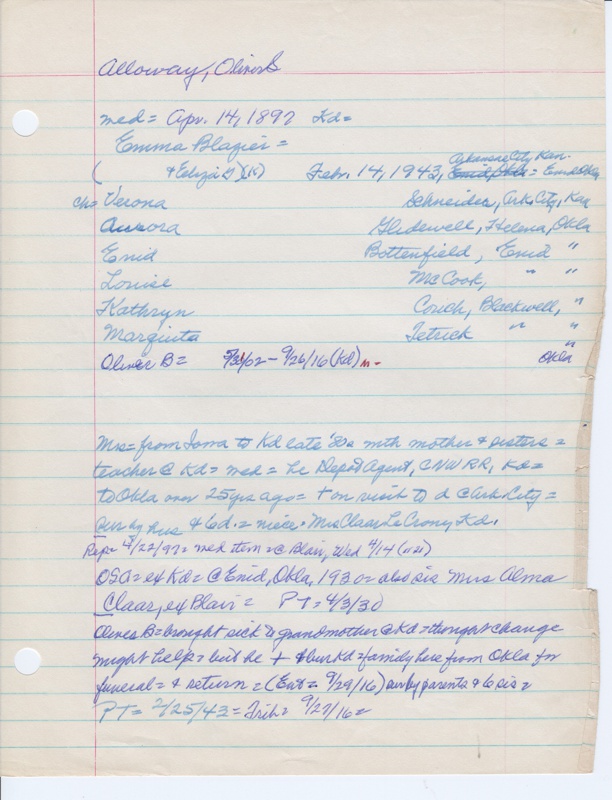 Alloway, Oliver S
med = Apr. 14, 1897 Kd=
Emma Blazier =
( & Eeliza D)(15) Febr. 14, 1943, Arkansas City Kan.
Enid Okla = Enid Okla
ch= Verona Schneider, Ark. City, Kan
Aurora Glidewell, Helena, Okla
Enid Bottenfield, Enid "
Louise McCook, " "
Kathryn Couch, Blackwell, "
Margiuta Tetrick " "
"
Oliver B = 7/31/02 - 9/26/16 (Kd) m- Okla
Mrs= from Iowa to Kd late '80s with mother & sisters =
teacher @ Kd= med = he Depot Agent, CNW RR, Kd=
to Okla over 25 yrs ago = + on visit to d @ Ark City =
sur by hus & 6 d. = niece. Mrs Claar LeCrony Kd.
Rep= 4/22/97= med item = @ Blair, Wed 4/14
OSA= ex Kd= @ Enid, Okla, 1930= also sis Mrs Alma
Claar, ex Blair = PT= 4/3/30
Oliver B= brought sick to grandmother @ Kd= thought change
might help= but he + & bur Kd= family here from Okla for
funeral= & return = (Ent= 9/29/16) sur by parents & 6 sis=
PT= 2/25/43= Trib= 9/27/16=